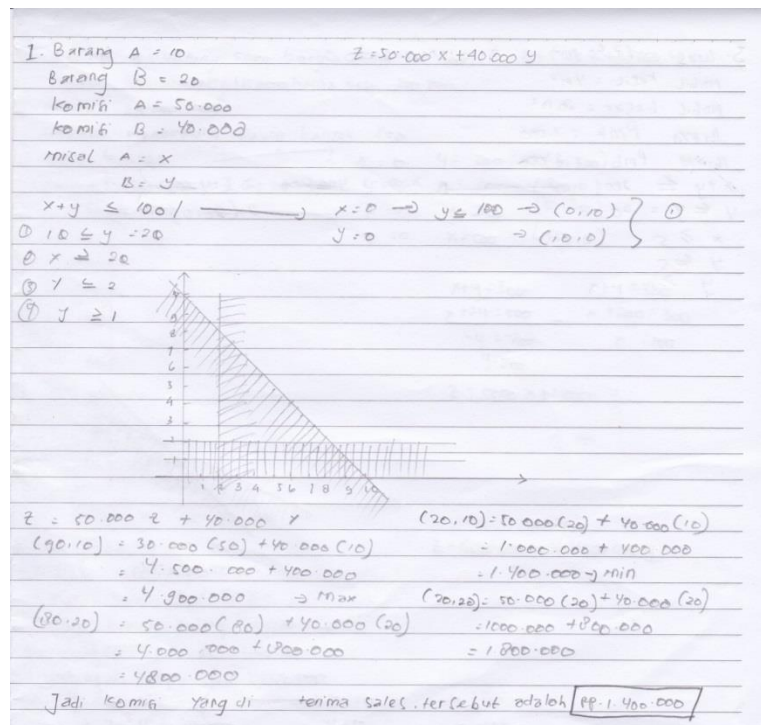 1. Barang A = 10 Z = 50.000 x + 40.000 y
Barang B = 20
Komisi A = 50.000
Komisi B = 40.000
misal A = x
B = y
x+y ≤ 100 / → x=0 → y ≤ 100 → (0,10) } ①
① 10 ≤ y = 20 y=0 → (10,0)
② x ≥ 20
③ y ≤ 2
④ y ≥ 1
8
7
6
5
4
3
2
1
1 2 3 4 5 6 7 8 9 10
Z = 50.000 x + 40.000 y
(90,10) = 30.000 (50) + 40.000 (10)
= 4.500.000 + 400.000
= 4.900.000 → max
(80.20) = 50.000 (80) + 40.000 (20)
= 4.000.000 + 800.000
= 4800.000
(20,10) = 50 000 (20) + 40.000 (10)
= 1.000.000 + 400.000
= 1.400.000 → min
(20,20) = 50.000 (20) + 40.000 (20)
= 1000.000 + 800.000
= 1.800.000
Jadi komisi yang di terima sales tersebut adalah Rp.1.400.000